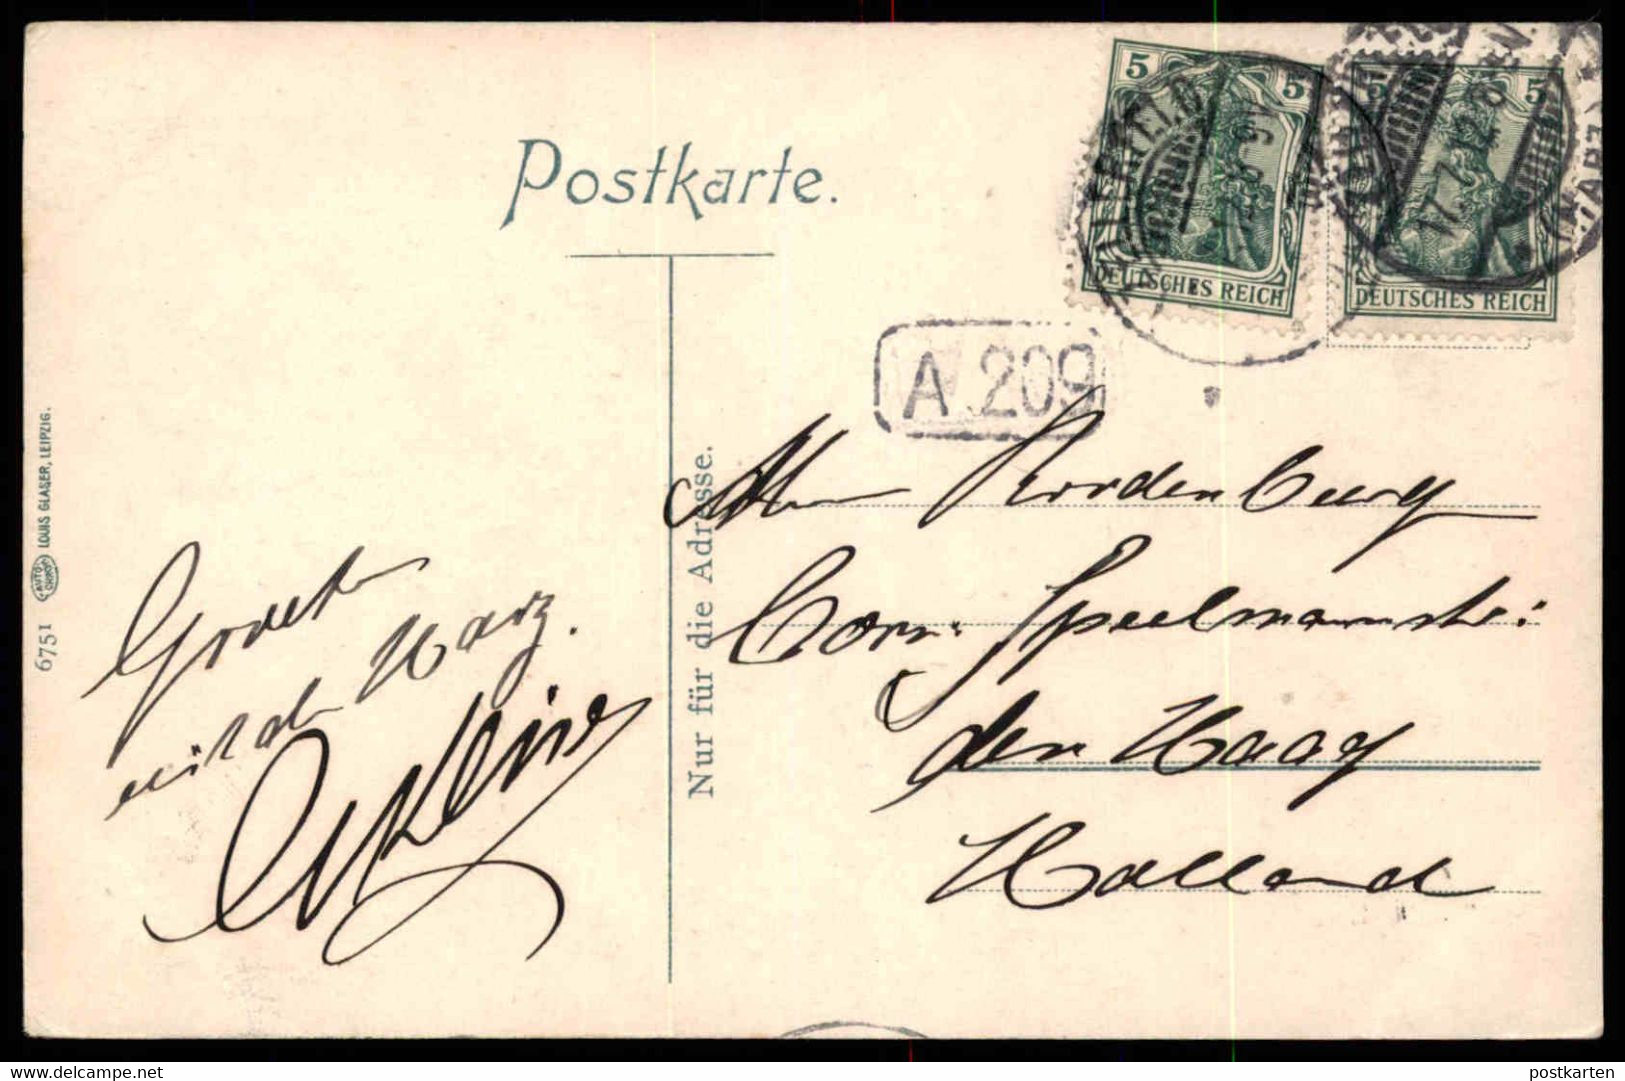 Postkarte.
5 5
DEUTSCHES REICH
5 5
DEUTSCHES REICH
17.7.12.
(HARZ)
A 209
Nordenburg
Corn: Speelmanstr:
den Haag
Holland
Groeten
uit de Harz.
Nur für die Adresse.
6751 AUTO CHROM LOUIS GLASER, LEIPZIG.
www.delcampe.net
postkarten